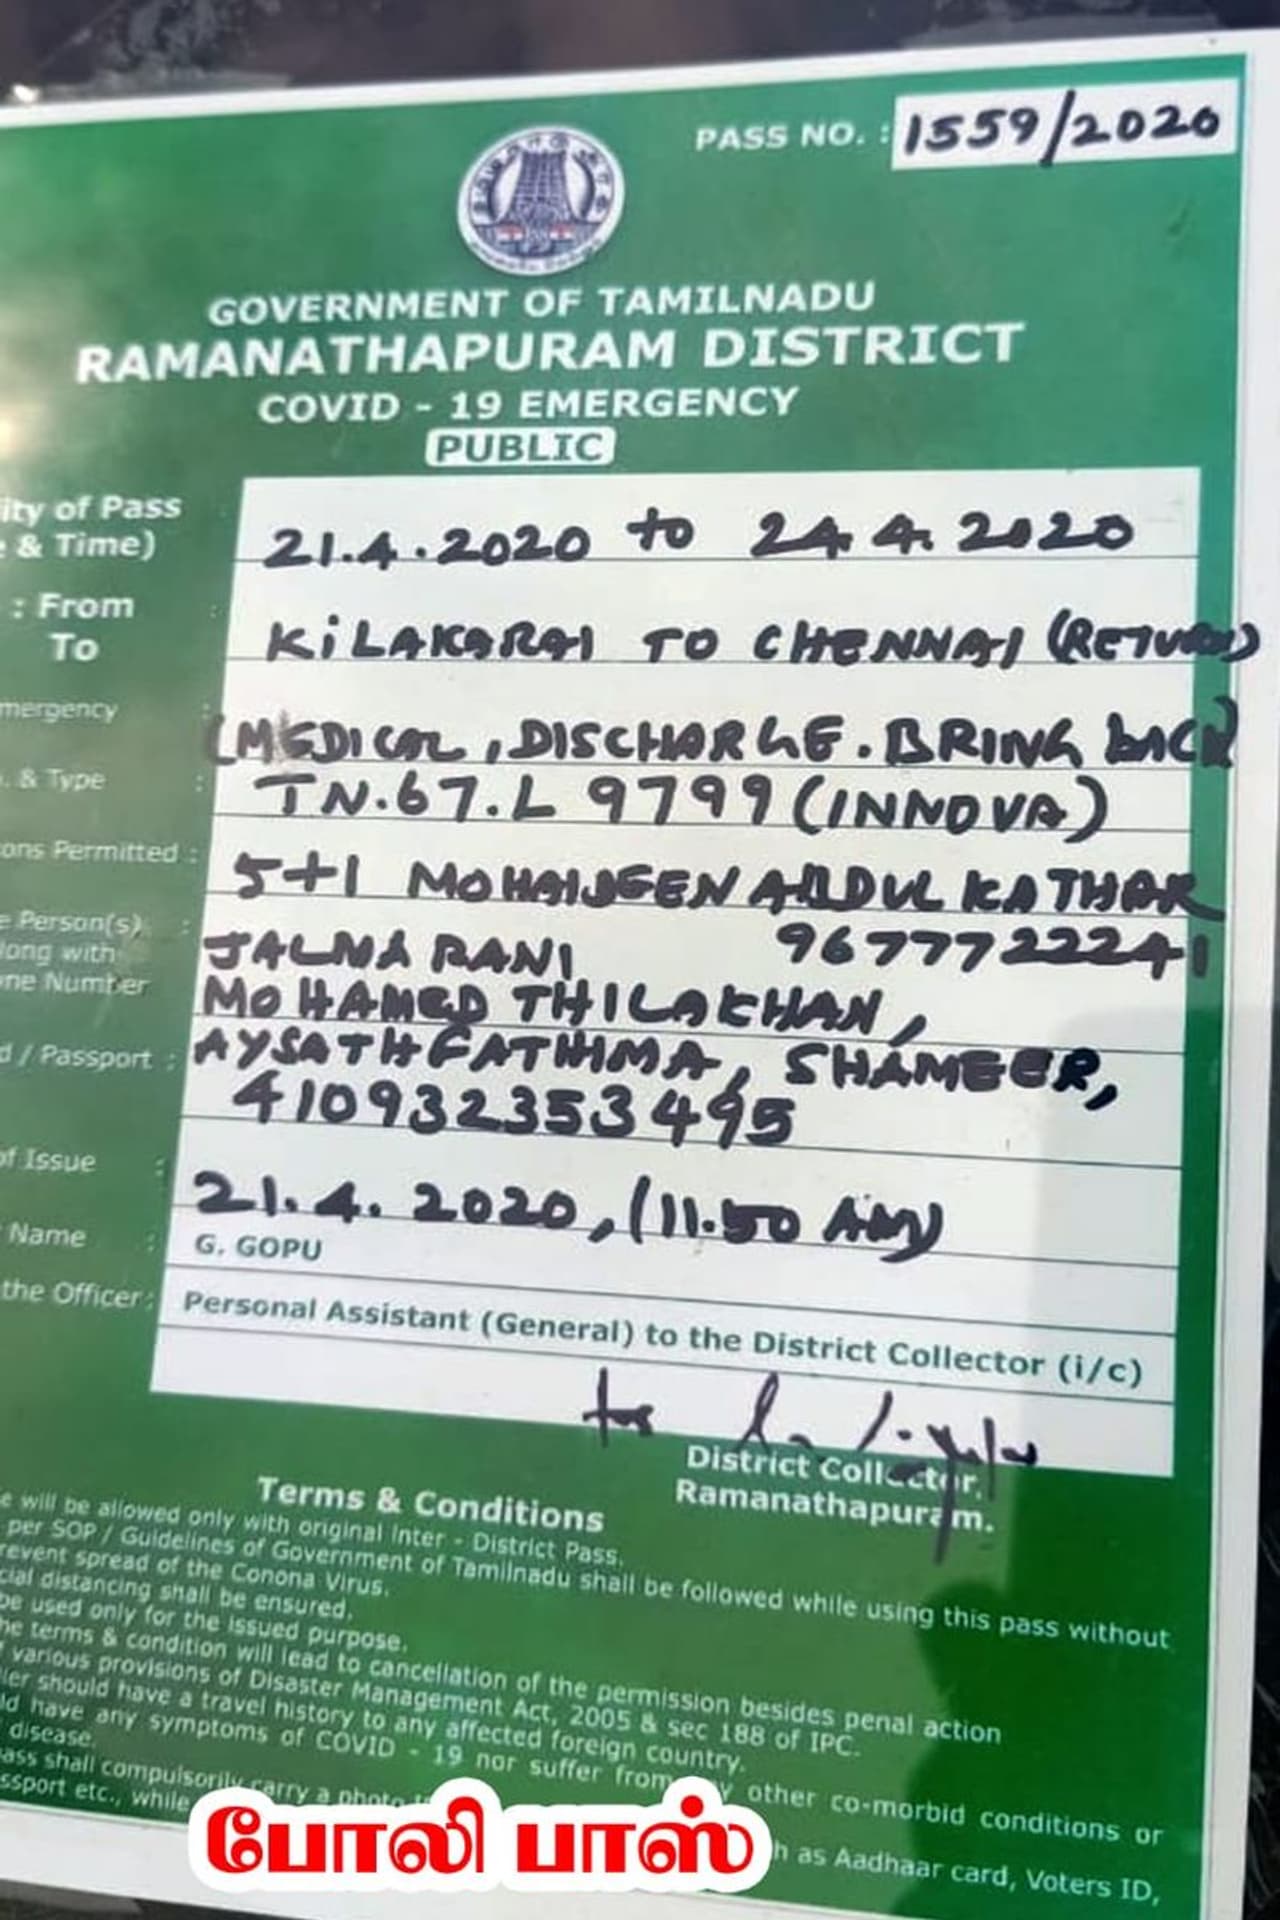 PASS NO. : 1559/2020
GOVERNMENT OF TAMILNADU
RAMANATHAPURAM DISTRICT
COVID - 19 EMERGENCY
PUBLIC
ity of Pass
& Time)
21.4.2020 to 24.4.2020
: From
To
: KiLAKARAI TO CHENNAI (RETURN)
mergency : (MEDICAL, DISCHARGE. BRING BACK)
. & Type : TN.67.L 9799 (INNOVA)
ons Permitted : 5+1 MOHAIJEEN ABDUL KATHAR
e Person(s) :
long with
ne Number
JALNA RANI 9677722241
MOHAMED THILAKHAN,
AYSATH FATHIMA, SHAMEER,
d / Passport : 410932353495
of Issue : 21.4.2020, (11.50 AM)
Name : G. GOPU
the Officer : Personal Assistant (General) to the District Collector (i/c)
District Collector,
Ramanathapuram.
Terms & Conditions
e will be allowed only with original Inter - District Pass.
per SOP / Guidelines of Government of Tamilnadu shall be followed while using this pass without
revent spread of the Conona Virus.
cial distancing shall be ensured.
be used only for the issued purpose.
he terms & condition will lead to cancellation of the permission besides penal action
various provisions of Disaster Management Act, 2005 & sec 188 of IPC.
ler should have a travel history to any affected foreign country.
ld have any symptoms of COVID - 19 nor suffer from other co-morbid conditions or
disease.
ass shall compulsorily carry a photo
h as Aadhaar card, Voters ID,
ssport etc., while
போலி பாஸ்